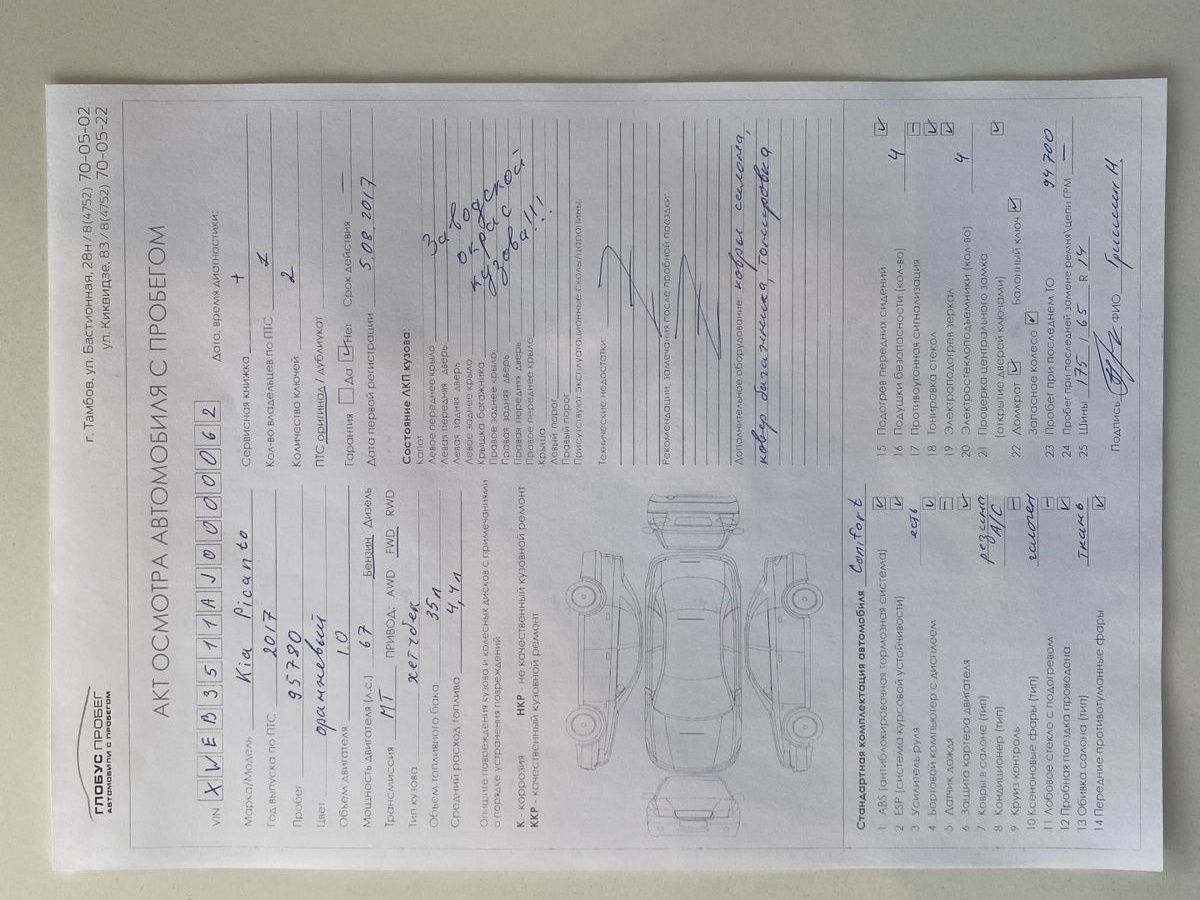 ГЛОБУС ПРОБЕГ
АВТОМОБИЛИ С ПРОБЕГОМ
г. Тамбов, ул. Бастионная, 28н / 8(4752) 70-05-02
ул. Киквидзе, 83 / 8(4752) 70-05-22
АКТ ОСМОТРА АВТОМОБИЛЯ С ПРОБЕГОМ
VIN XWEB3511AJ0000062
Дата, время диагностики:
Марка/Модель Kia Picanto
Год выпуска по ПТС 2017
Пробег 95780
Цвет оранжевый
Объем двигателя 1.0
Мощность двигателя (л.с.) 67 Бензин Дизель
Трансмиссия МТ ПРИВОД: AWD FWD RWD
Тип кузова хетчбек
Объем топливного бака 35л
Средний расход топлива 4,4л
Опишите повреждения кузова и колесных дисков с примечаниями
о порядке устранения повреждений
К - коррозия НКР - не качественный кузовной ремонт
ККР - качественный кузовной ремонт
Сервисная книжка +
Кол-во владельцев по ПТС 1
Количество ключей 2
ПТС оригинал / дубликат
Гарантия Да Нет Срок действия —
Дата первой регистрации 5.08.2017
Состояние ЛКП кузова:
Капот
Левое переднее крыло
Левая передняя дверь
Левая задняя дверь
Левое заднее крыло
Крышка багажника
Правое заднее крыло
Правая задняя дверь
Правая передняя дверь
Правое переднее крыло
Крыша
Левый порог
Правый порог
Присутствуют эксплуатационные сколы/царапины.
Технические недостатки:
Рекомендации, замечания после пробной поездки:
Дополнительное оборудование: ковры салона,
ковер багажника, тонировка
Стандартная комплектация автомобиля Comfort
1 ABS (антиблокировочная тормозная система)
2 ESP (система курсовой устойчивости)
3 Усилитель руля есть
4 Бортовой компьютер с дисплеем
5 Датчик дождя
6 Защита картера двигателя
7 Ковры в салоне (тип) резина
8 Кондиционер (тип) A/C
9 Круиз контроль
10 Ксеноновые фары (тип) галоген
11 Лобовое стекло с подогревом
12 Пробная поездка проведена
13 Обивка салона (тип) ткань
14 Передние противотуманные фары
15 Подогрев передних сидений
16 Подушки безопасности (кол-во) 4
17 Противоугонная сигнализация
18 Тонировка стекол
19 Электроподогрев зеркал
20 Электростеклоподъемники (кол-во) 4
21 Проверка центрального замка
(открытие дверей ключами)
22 Домкрат Балонный ключ
Запасное колесо
23 Пробег при последнем ТО 94700
24 Пробег при последней замене ремня\цепи ГРМ —
25 Шины 175 / 65 R 14
Подпись ФИО